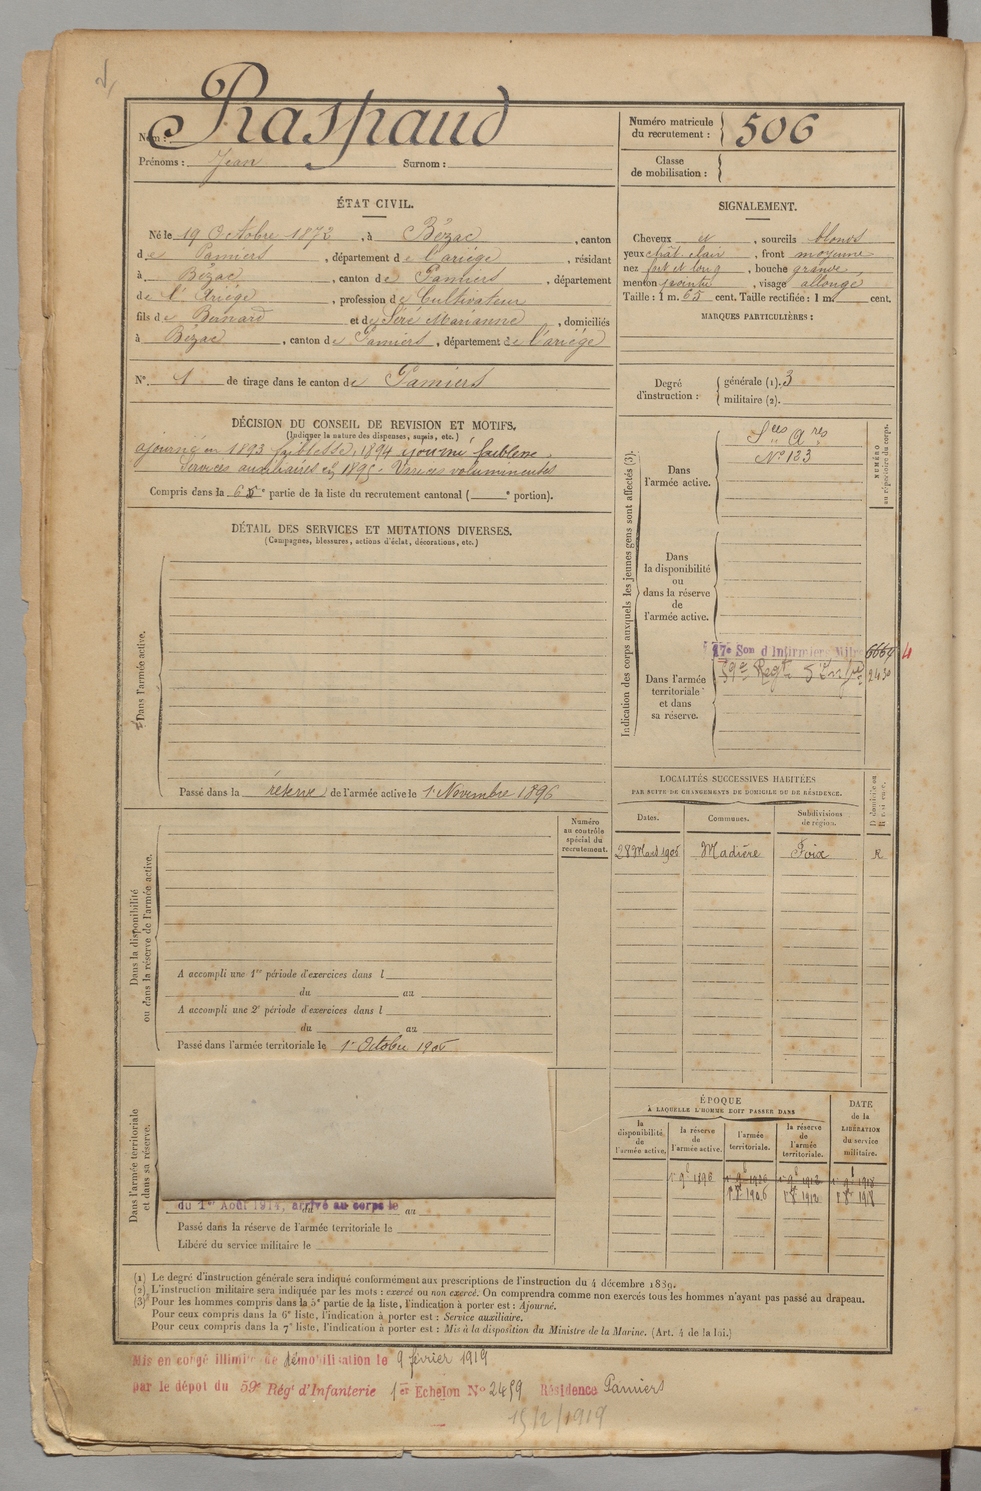 Nom : Raspaud
Prénoms : Jean Surnom :
Numéro matricule du recrutement : 506
Classe de mobilisation :
ÉTAT CIVIL.
Né le 19 Octobre 1872, à Bézac, canton
de Pamiers, département de l'ariége, résidant
à Bézac, canton de Pamiers, département
de l'Ariége, profession de Cultivateur
fils de Bernard et de Séré Marianne, domiciliés
à Bézac, canton de Pamiers, département de l'ariége
N° 1 de tirage dans le canton de Pamiers
SIGNALEMENT.
Cheveux et, sourcils blonds
yeux chât clair, front moyenne
nez fort et long, bouche grande
menton pointu, visage allongé
Taille : 1 m. 65 cent. Taille rectifiée : 1 m. cent.
MARQUES PARTICULIÈRES :
Degré d'instruction : générale (1). 3
militaire (2).
DÉCISION DU CONSEIL DE REVISION ET MOTIFS.
(Indiquer la nature des dispenses, sursis, etc.)
ajourné en 1893 faiblesse, 1894 ajourné faiblesse
Services auxiliaires en 1895 - Varices volumineuses
Compris dans la 6 e partie de la liste du recrutement cantonal ( e portion).
DÉTAIL DES SERVICES ET MUTATIONS DIVERSES.
(Campagnes, blessures, actions d'éclat, décorations, etc.)
Dans l'armée active.
Passé dans la réserve de l'armée active le 1 Novembre 1896
Indication des corps auxquels les jeunes gens sont affectés (3).
NUMÉRO au répertoire du corps.
Dans l'armée active.
Sces Ares
N° 123
Dans la disponibilité ou dans la réserve de l'armée active.
Dans l'armée territoriale et dans sa réserve.
17e Son d'Infirmiers Mil
59e Regt d'Inf 2430
LOCALITÉS SUCCESSIVES HABITÉES
PAR SUITE DE CHANGEMENTS DE DOMICILE OU DE RÉSIDENCE.
Dates. Communes. Subdivisions de région. D domicile ou R résidence.
28 Mars 1906 Madière Foix R
Dans la disponibilité ou dans la réserve de l'armée active.
Numéro au contrôle spécial du recrutement.
A accompli une 1re période d'exercices dans l
du au
A accompli une 2e période d'exercices dans l
du au
Passé dans l'armée territoriale le 1r Octobre 1906
Dans l'armée territoriale et dans sa réserve.
du 1er Août 1914, arrivé au corps le au
Passé dans la réserve de l'armée territoriale le
Libéré du service militaire le
ÉPOQUE
À LAQUELLE L'HOMME DOIT PASSER DANS
la disponibilité de l'armée active.
la réserve de l'armée active.
l'armée territoriale.
la réserve de l'armée territoriale.
DATE de la LIBÉRATION du service militaire.
1r 9b 1896 1r 9b 1906 1r 9b 1912 1r 9b 1918
1r 8b 1906 1r 8b 1912 1r 8b 1918
(1) Le degré d'instruction générale sera indiqué conformément aux prescriptions de l'instruction du 4 décembre 1889.
(2) L'instruction militaire sera indiquée par les mots : exercé ou non exercé. On comprendra comme non exercés tous les hommes n'ayant pas passé au drapeau.
(3) Pour les hommes compris dans la 5e partie de la liste, l'indication à porter est : Ajourné.
Pour ceux compris dans la 6e liste, l'indication à porter est : Service auxiliaire.
Pour ceux compris dans la 7e liste, l'indication à porter est : Mis à la disposition du Ministre de la Marine. (Art. 4 de la loi.)
Mis en congé illimité de démobilisation le 9 février 1919
par le dépôt du 59e Régt d'Infanterie 1er Echelon N° 2459 Résidence Pamiers
15/2/1919